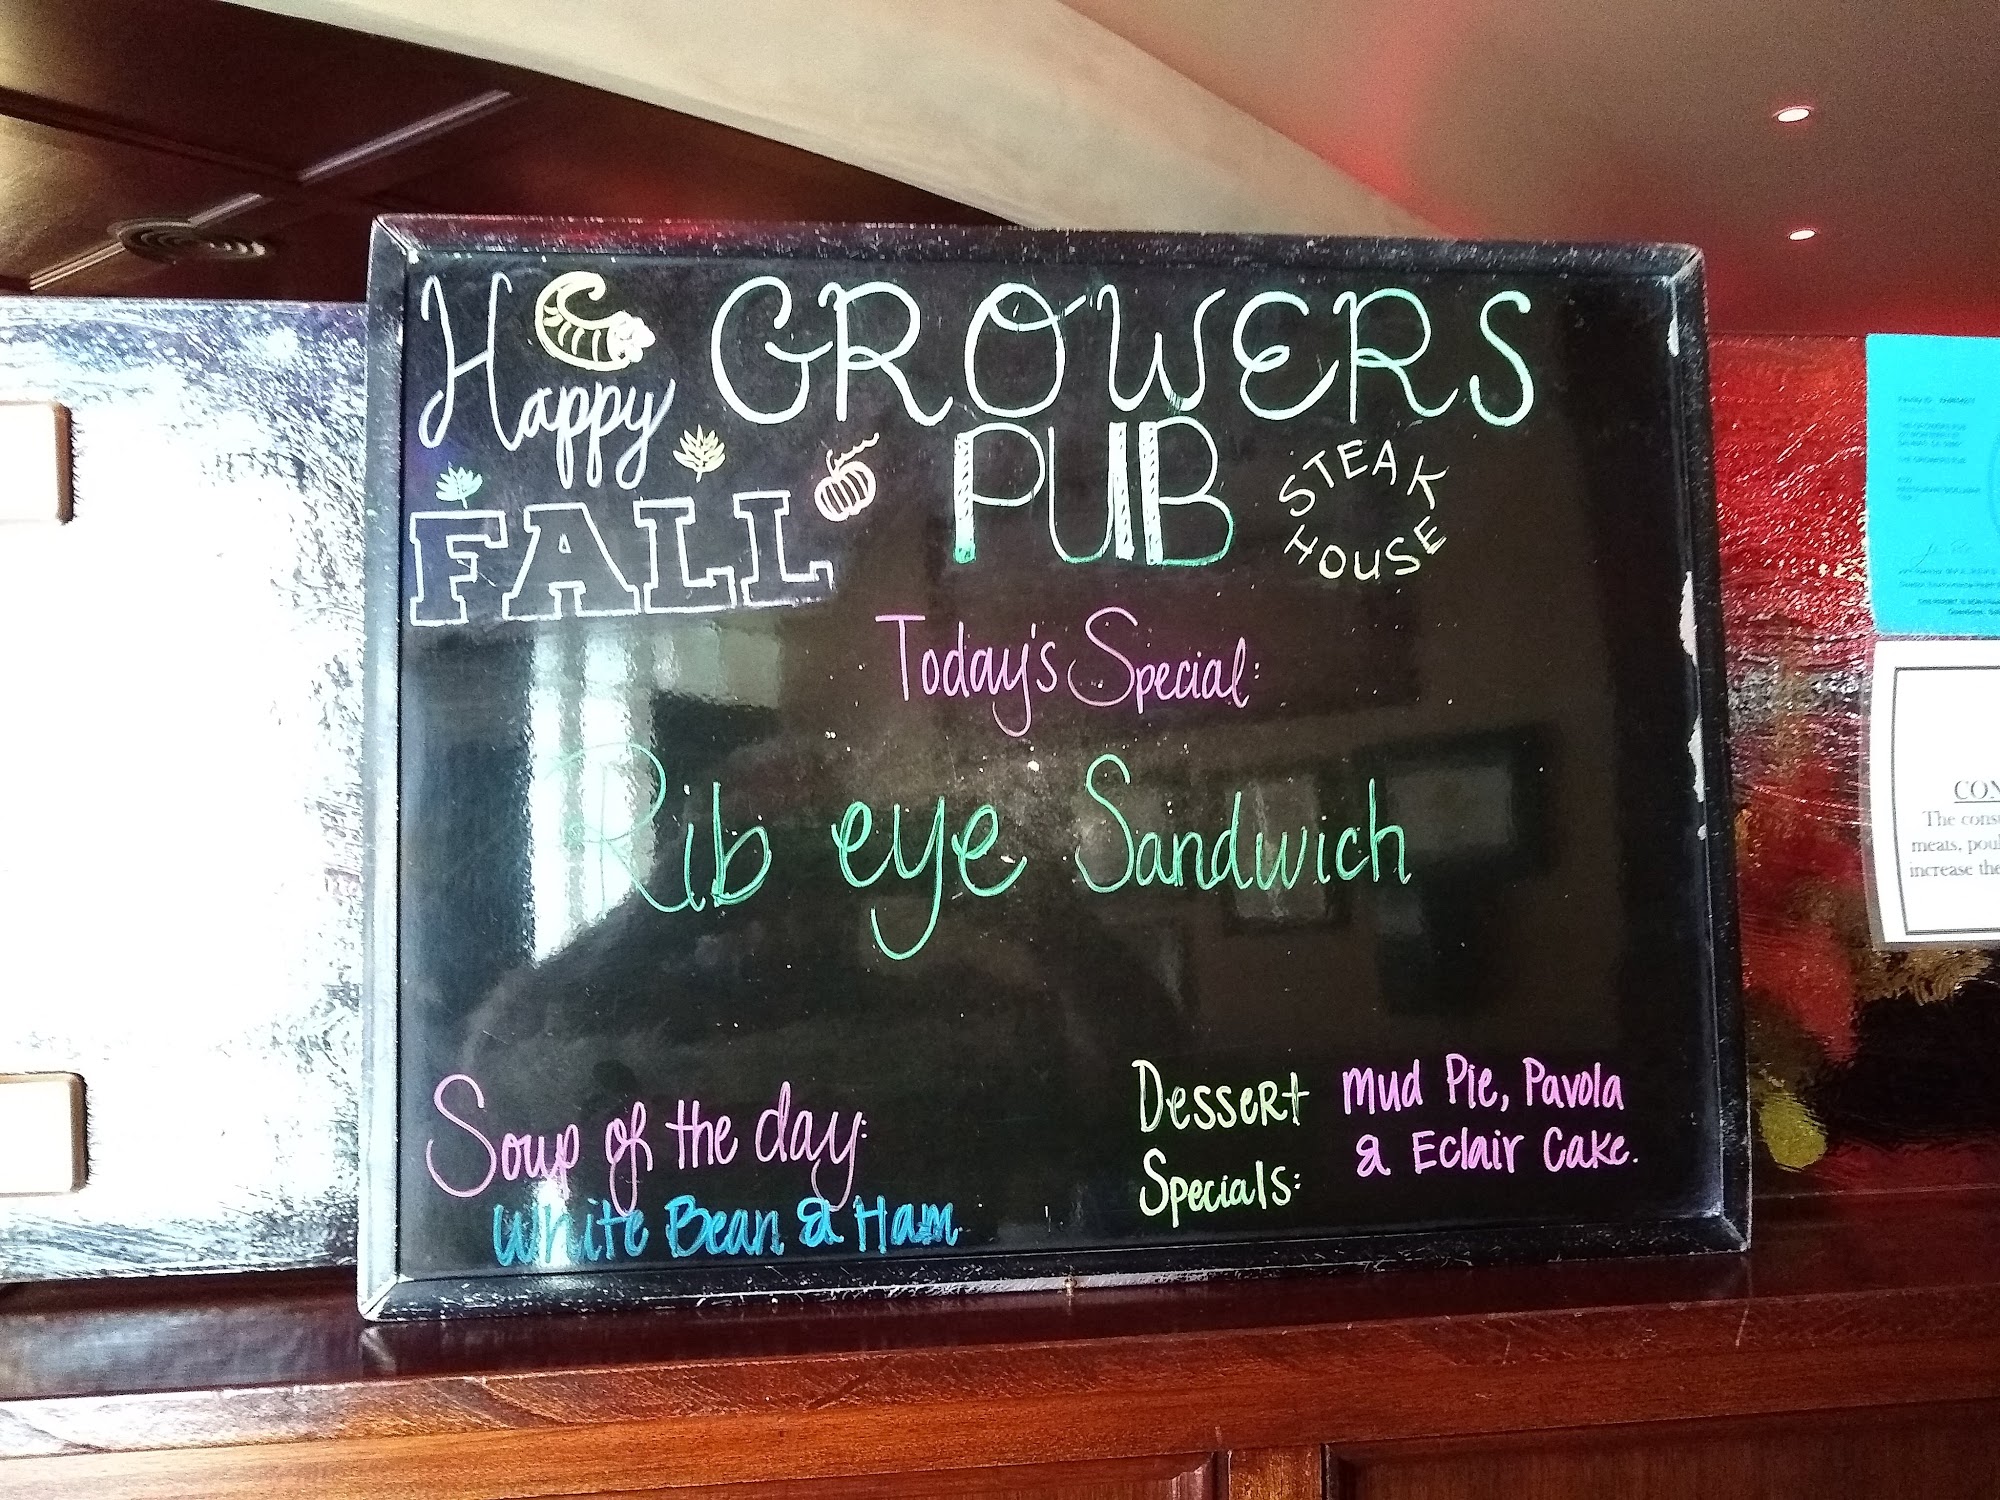 Happy
FALL
GROWERS
PUB
STEAK
HOUSE
Today's Special:
Rib eye Sandwich
Soup of the day:
White Bean & Ham
Dessert
Specials:
Mud Pie, Pavola
& Eclair Cake.
CON
The cons
meats, poul
increase the